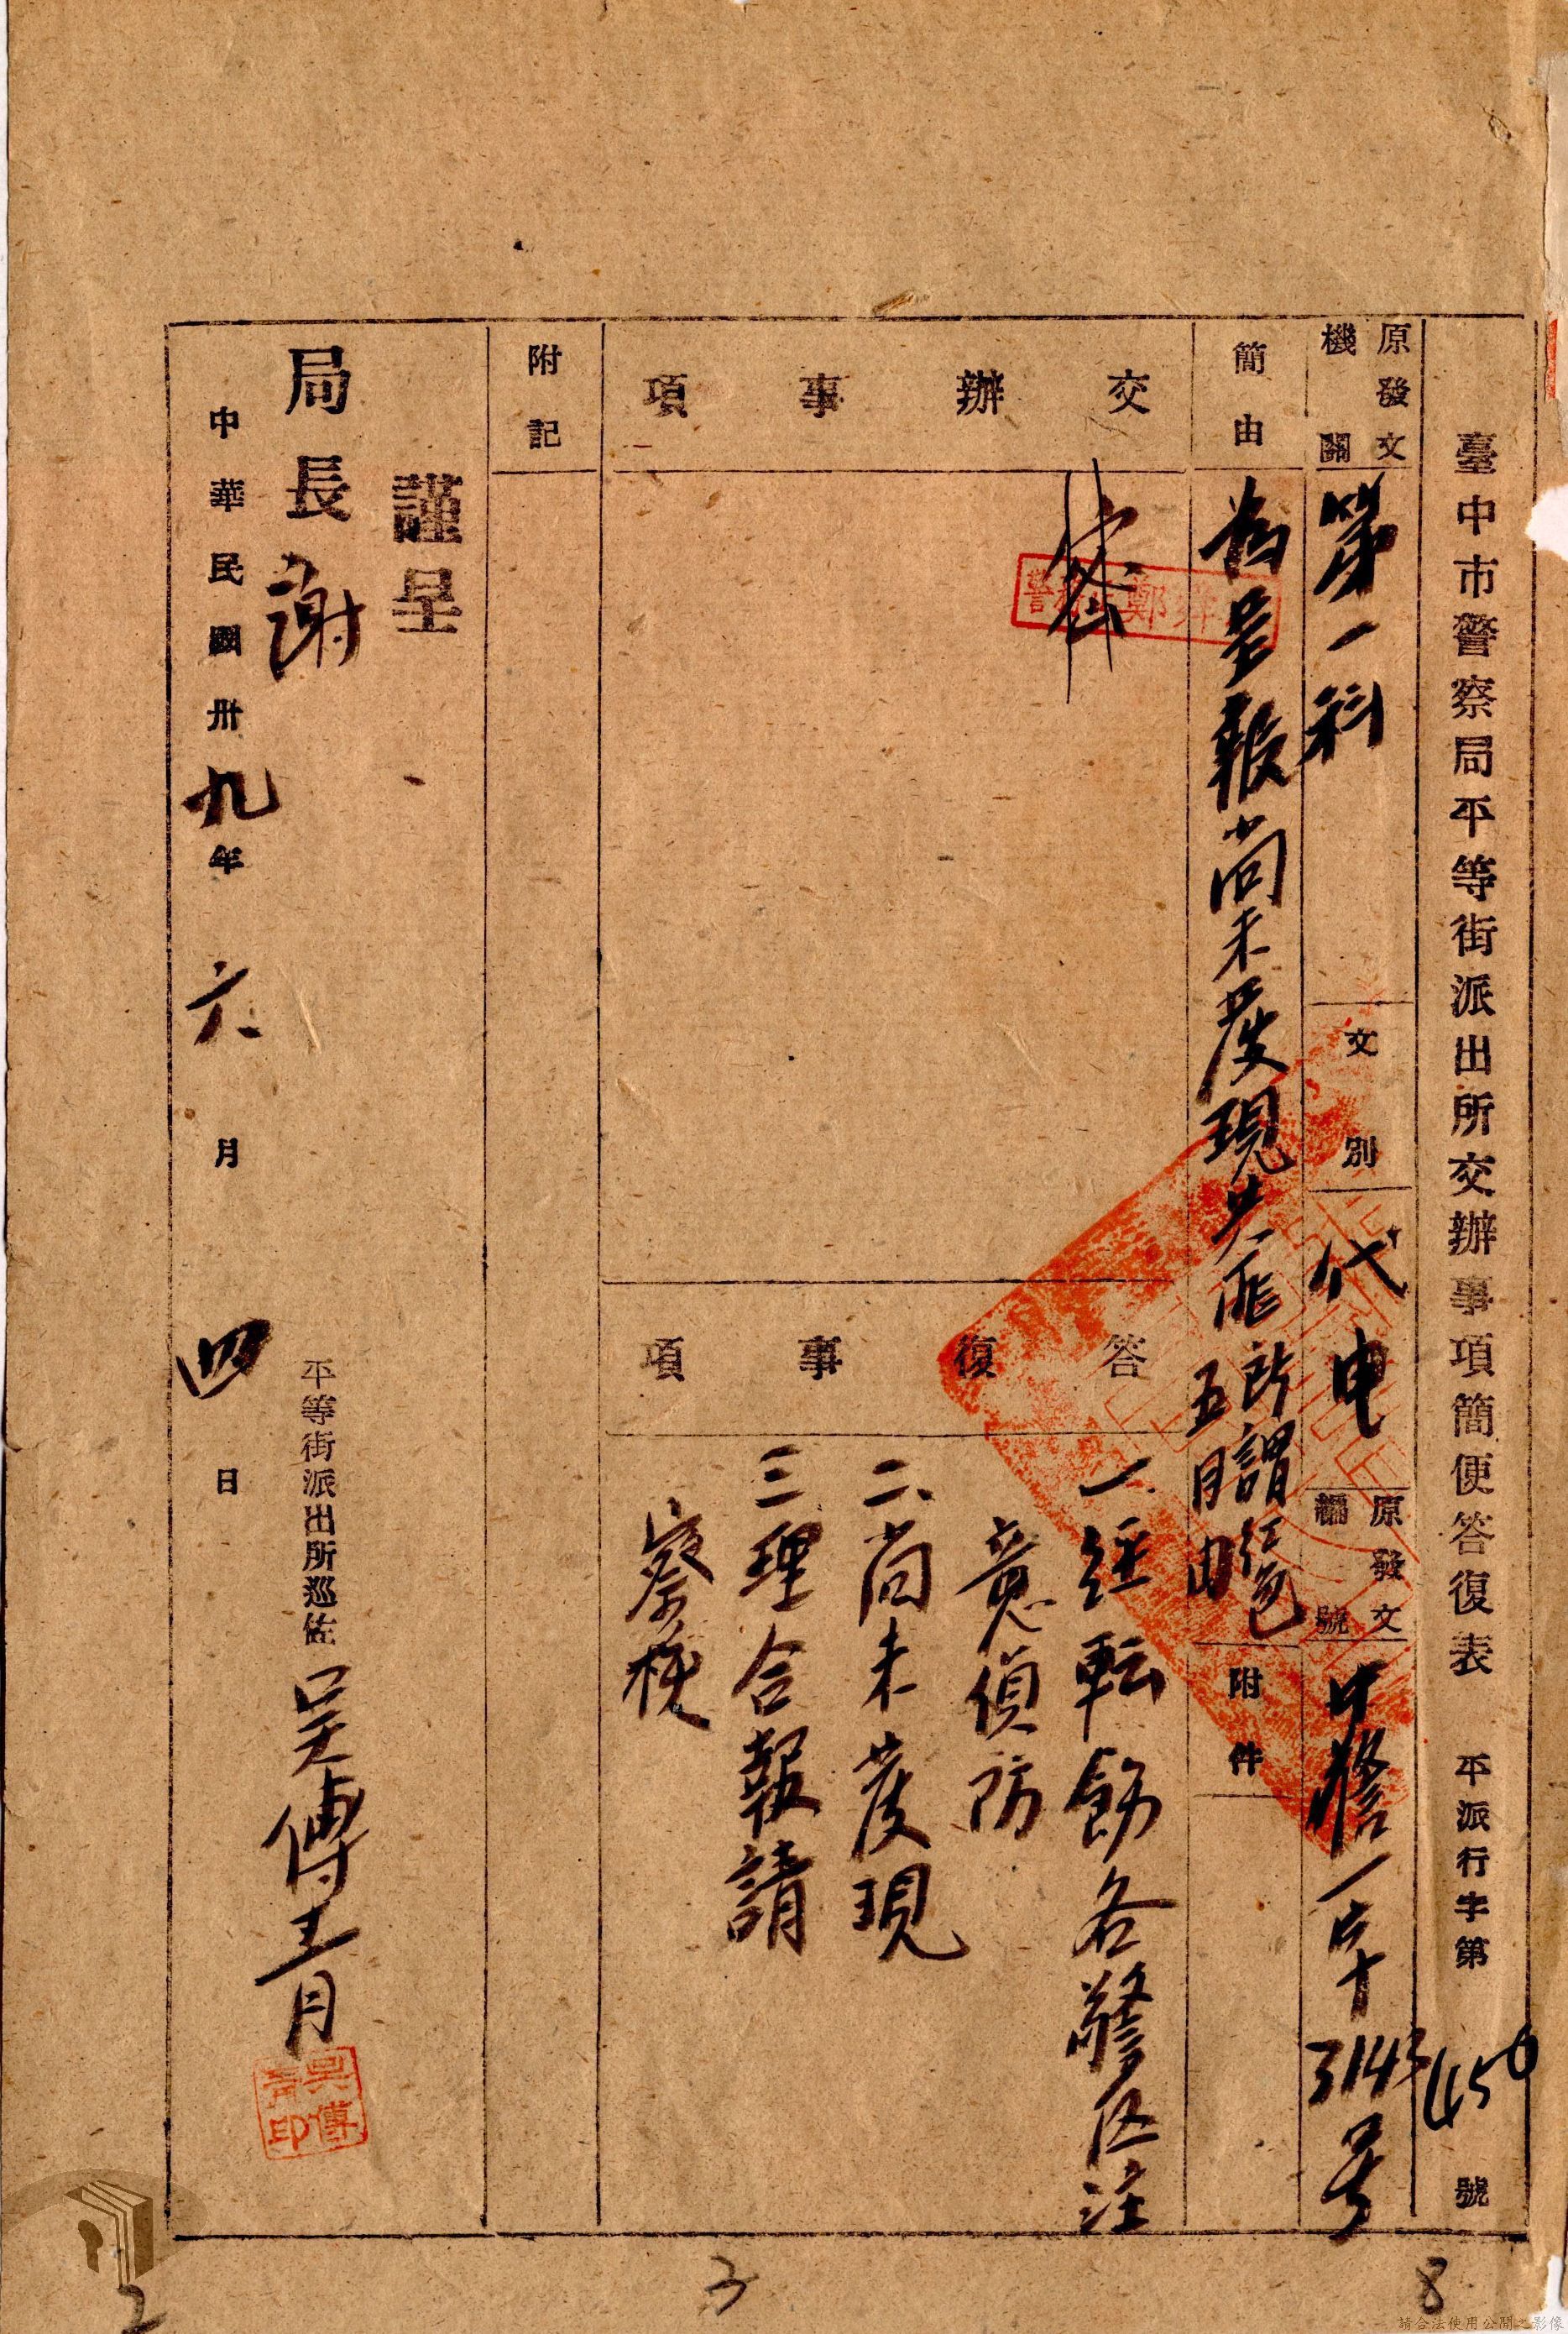 臺中市警察局平等街派出所交辦事項簡便答復表 平派行字第450號
原發文機關
第一科
文別
代电
原發文編號
中警一字3143号
簡由
為呈報尚未發現共匪所謂紅色五月由
附件
交辦事項
密
答復事項
一、经転飭各警区注
意偵防
二、尚未發現
三理合報請
察核
附記
謹呈
局長謝
平等街派出所巡佐 吴傳青
吳傳青印
中華民國卅九年六月四日
2
3
8
請合法使用公開之影像